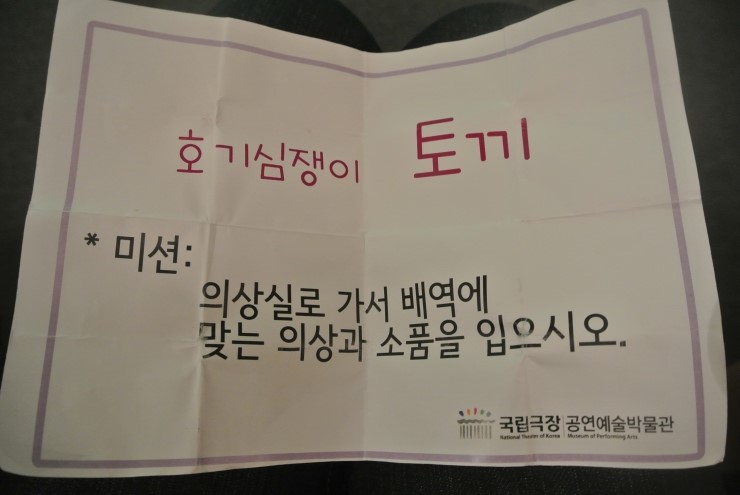 호기심쟁이 토끼
* 미션:
의상실로 가서 배역에
맞는 의상과 소품을 입으시오.
국립극장 공연예술박물관
National Theater of Korea Museum of Performing Arts